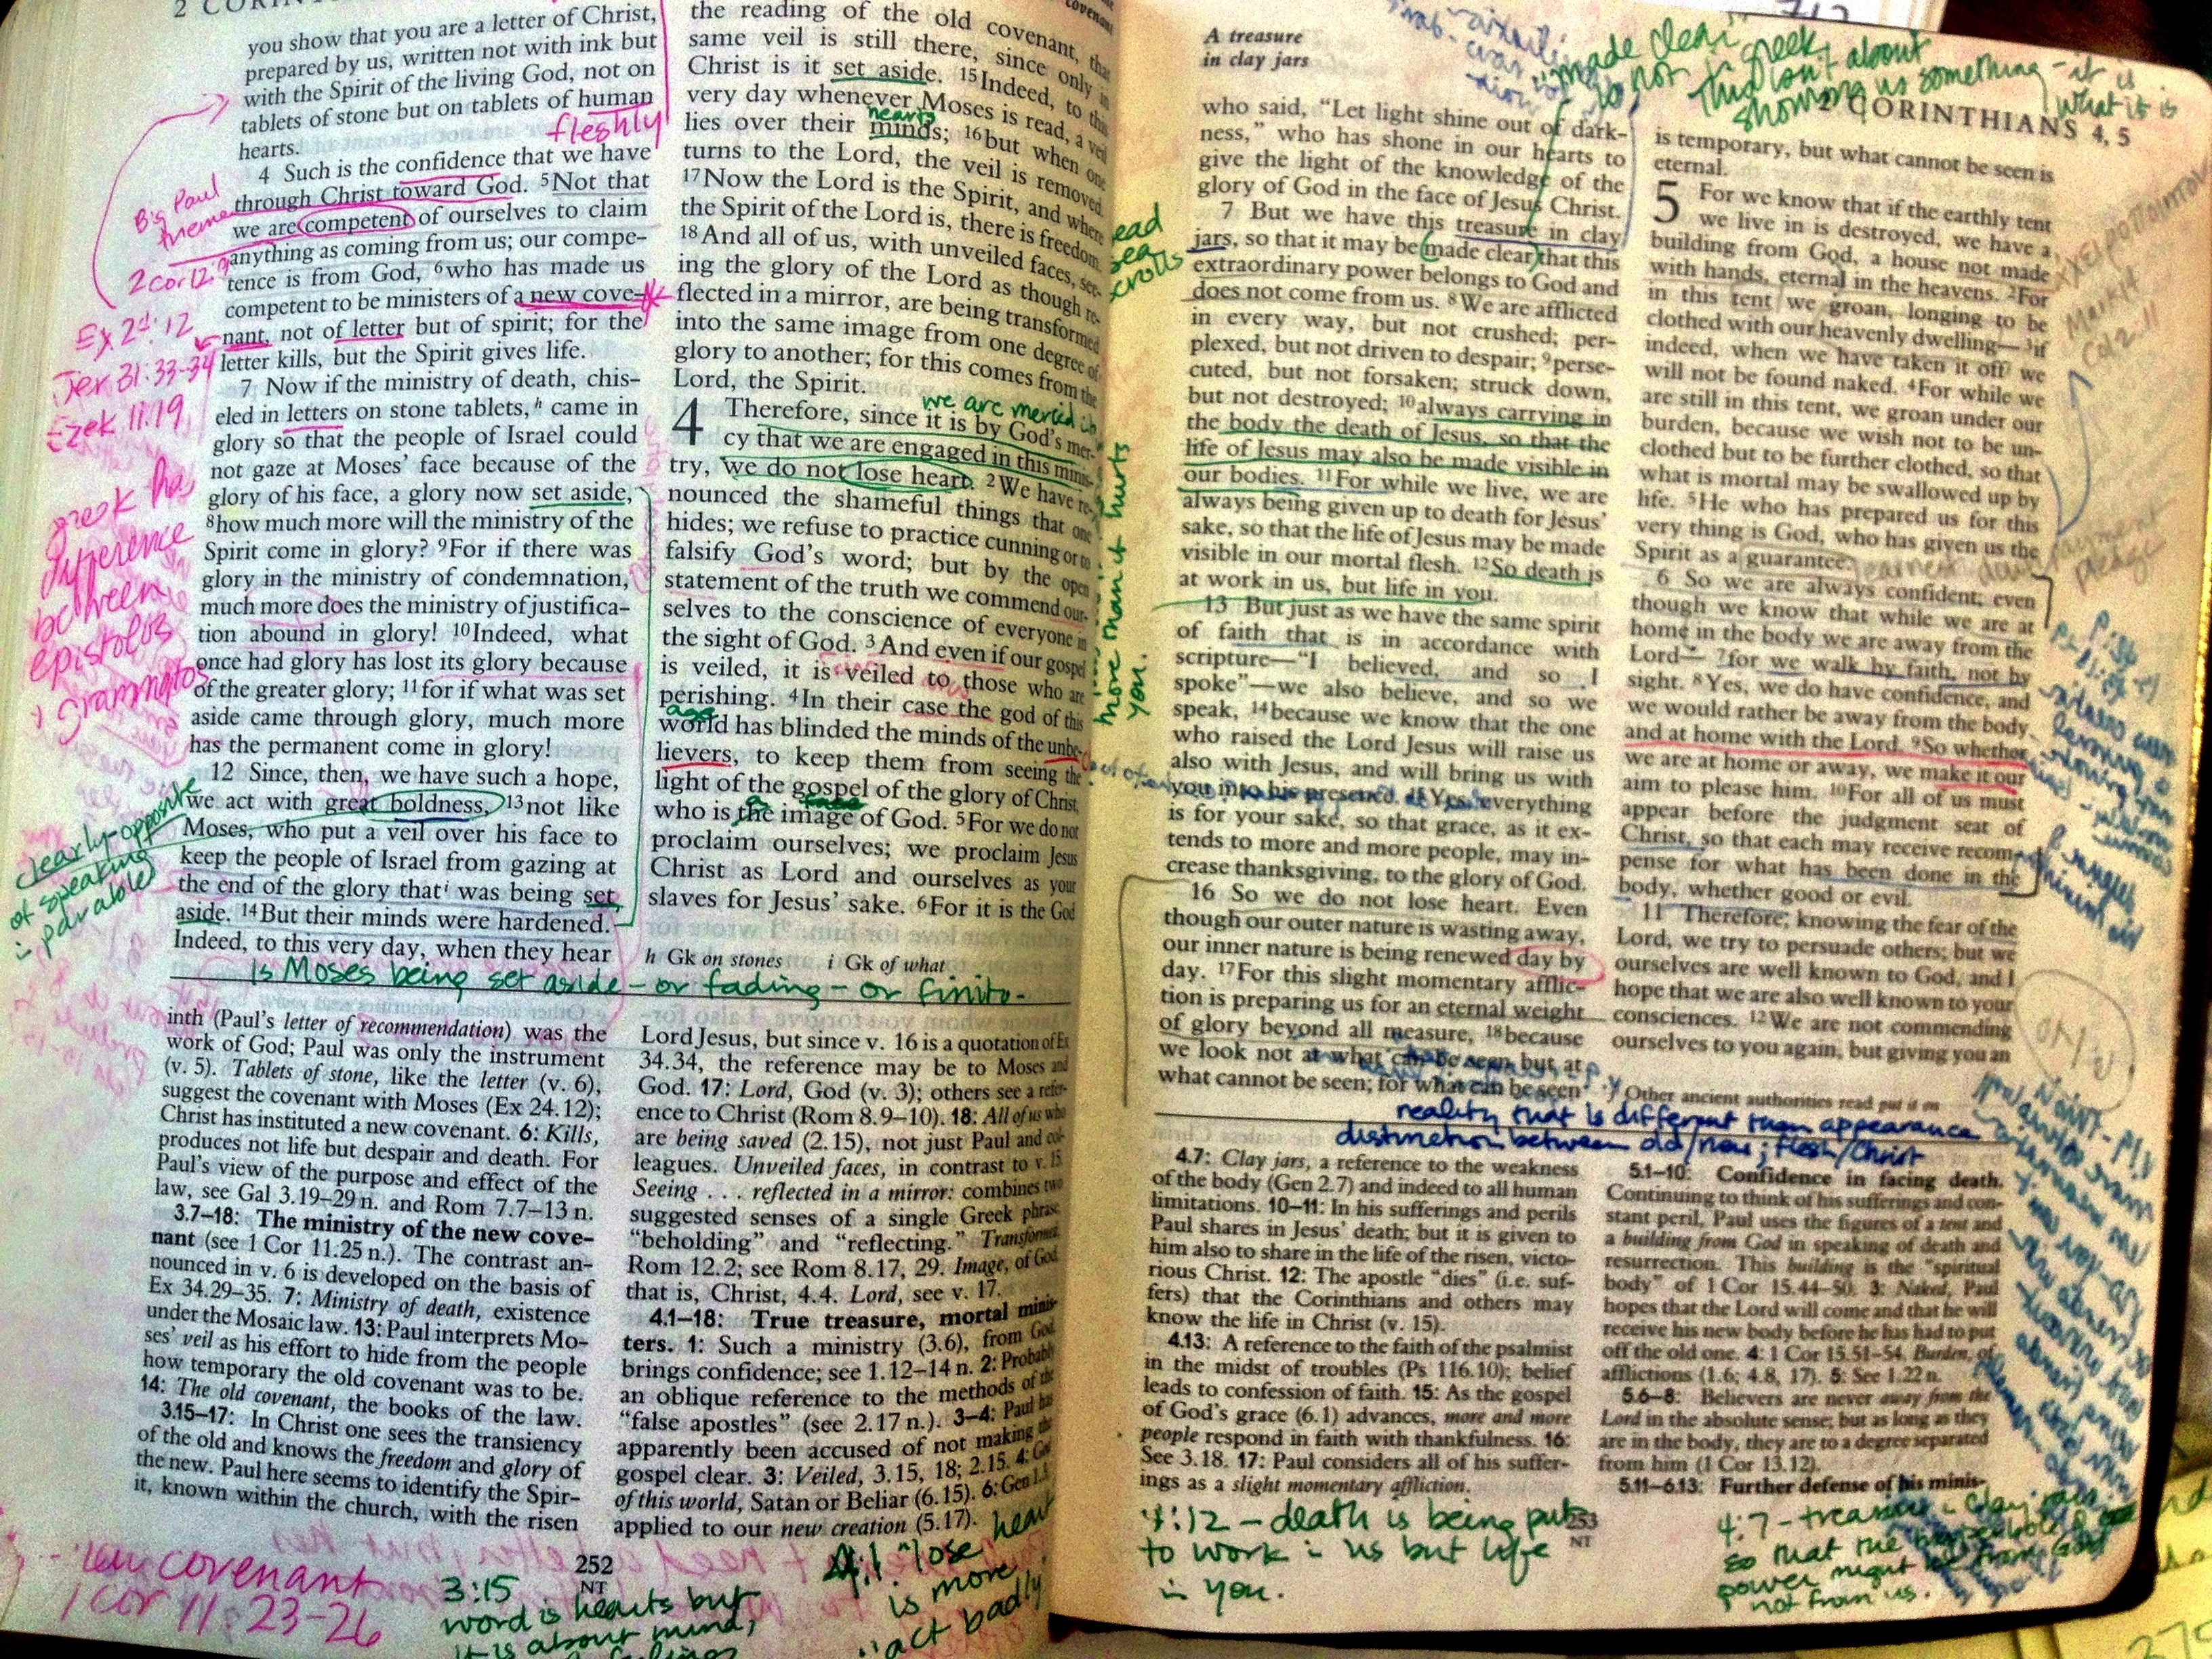 2 CORIN
you show that you are a letter of Christ,
prepared by us, written not with ink but
with the Spirit of the living God, not on
tablets of stone but on tablets of human
fleshly
hearts.
4 Such is the confidence that we have
through Christ toward God. 5Not that
we are competent of ourselves to claim
anything as coming from us; our compe-
tence is from God, 6who has made us
competent to be ministers of a new cove-
nant, not of letter but of spirit; for the
letter kills, but the Spirit gives life.
7 Now if the ministry of death, chis-
eled in letters on stone tablets,h came in
glory so that the people of Israel could
not gaze at Moses' face because of the
glory of his face, a glory now set aside,
8how much more will the ministry of the
Spirit come in glory? 9For if there was
glory in the ministry of condemnation,
much more does the ministry of justifica-
tion abound in glory! 10Indeed, what
once had glory has lost its glory because
of the greater glory; 11for if what was set
aside came through glory, much more
has the permanent come in glory!
12 Since, then, we have such a hope,
we act with great boldness, 13not like
Moses, who put a veil over his face to
keep the people of Israel from gazing at
the end of the glory thati was being set
aside. 14But their minds were hardened.
Indeed, to this very day, when they hear
Big Paul
theme
2 Cor 12:9
Ex 24:12
Jer 31:33-34
Ezek 11.19
greek has
difference
between
epistolos
grammatos
clearly-opposite
of speaking
in parables
the reading of the old covenant, that
same veil is still there, since only in
Christ is it set aside. 15Indeed, to this
very day whenever Moses is read, a veil
hearts
lies over their minds; 16but when one
turns to the Lord, the veil is removed.
17Now the Lord is the Spirit, and where
the Spirit of the Lord is, there is freedom.
18And all of us, with unveiled faces, see-
ing the glory of the Lord as though re-
flected in a mirror, are being transformed
into the same image from one degree of
glory to another; for this comes from the
Lord, the Spirit.
we are mercied in
4 Therefore, since it is by God's mer-
cy that we are engaged in this minis-
try, we do not lose heart. 2We have re-
nounced the shameful things that one
hides; we refuse to practice cunning or to
falsify God's word; but by the open
statement of the truth we commend our-
selves to the conscience of everyone in
the sight of God. 3And even if our gospel
is veiled, it is veiled to those who are
perishing. 4In their case the god of this
age
world has blinded the minds of the unbe-
lievers, to keep them from seeing the
light of the gospel of the glory of Christ,
who is the image of God. 5For we do not
proclaim ourselves; we proclaim Jesus
Christ as Lord and ourselves as your
slaves for Jesus' sake. 6For it is the God
h Gk on stones i Gk of what
is Moses being set aside - or fading - or finito-
inth (Paul's letter of recommendation) was the
work of God; Paul was only the instrument
(v. 5). Tablets of stone, like the letter (v. 6),
suggest the covenant with Moses (Ex 24.12);
Christ has instituted a new covenant. 6: Kills,
produces not life but despair and death. For
Paul's view of the purpose and effect of the
law, see Gal 3.19–29 n. and Rom 7.7–13 n.
3.7–18: The ministry of the new cove-
nant (see 1 Cor 11.25 n.). The contrast an-
nounced in v. 6 is developed on the basis of
Ex 34.29–35. 7: Ministry of death, existence
under the Mosaic law. 13: Paul interprets Mo-
ses' veil as his effort to hide from the people
how temporary the old covenant was to be.
14: The old covenant, the books of the law.
3.15–17: In Christ one sees the transiency
of the old and knows the freedom and glory of
the new. Paul here seems to identify the Spir-
it, known within the church, with the risen
Lord Jesus, but since v. 16 is a quotation of Ex
34.34, the reference may be to Moses and
God. 17: Lord, God (v. 3); others see a refer-
ence to Christ (Rom 8.9–10). 18: All of us who
are being saved (2.15), not just Paul and col-
leagues. Unveiled faces, in contrast to v. 15.
Seeing . . . reflected in a mirror: combines two
suggested senses of a single Greek phrase,
"beholding" and "reflecting." Transformed,
Rom 12.2; see Rom 8.17, 29. Image, of God,
that is, Christ, 4.4. Lord, see v. 17.
4.1–18: True treasure, mortal minis-
ters. 1: Such a ministry (3.6), from God,
brings confidence; see 1.12–14 n. 2: Probably
an oblique reference to the methods of the
"false apostles" (see 2.17 n.). 3–4: Paul has
apparently been accused of not making the
gospel clear. 3: Veiled, 3.15, 18; 2.15. 4: God
of this world, Satan or Beliar (6.15). 6: Gen 1.3,
applied to our new creation (5.17).
252
NT
new covenant
1 Cor 11:23-26
3:15
word is hearts but
it is about mind,
4:1 "lose heart
is more
"act badly
A treasure
in clay jars
"made clear"
is not greek
This isn't about
showing us something - it is
what it is
2 CORINTHIANS 4, 5
who said, "Let light shine out of dark-
ness," who has shone in our hearts to
give the light of the knowledge of the
glory of God in the face of Jesus Christ.
7 But we have this treasure in clay
jars, so that it may be made clear that this
extraordinary power belongs to God and
does not come from us. 8We are afflicted
in every way, but not crushed; per-
plexed, but not driven to despair; 9perse-
cuted, but not forsaken; struck down,
but not destroyed; 10always carrying in
the body the death of Jesus, so that the
life of Jesus may also be made visible in
our bodies. 11For while we live, we are
always being given up to death for Jesus'
sake, so that the life of Jesus may be made
visible in our mortal flesh. 12So death is
at work in us, but life in you.
13 But just as we have the same spirit
of faith that is in accordance with
scripture—"I believed, and so I
spoke"—we also believe, and so we
speak, 14because we know that the one
who raised the Lord Jesus will raise us
also with Jesus, and will bring us with
you into his presence. 15Yes, everything
is for your sake, so that grace, as it ex-
tends to more and more people, may in-
crease thanksgiving, to the glory of God.
16 So we do not lose heart. Even
though our outer nature is wasting away,
our inner nature is being renewed day by
day. 17For this slight momentary afflic-
tion is preparing us for an eternal weight
of glory beyond all measure, 18because
we look not at what can be seen but at
what cannot be seen; for what can be seen
ead
sea
scrolls
more than it hurts
you.
is temporary, but what cannot be seen is
eternal.
5 For we know that if the earthly tent
we live in is destroyed, we have a
building from God, a house not made
with hands, eternal in the heavens. 2For
in this tent we groan, longing to be
clothed with our heavenly dwelling—3if
indeed, when we have taken it off we
will not be found naked. 4For while we
are still in this tent, we groan under our
burden, because we wish not to be un-
clothed but to be further clothed, so that
what is mortal may be swallowed up by
life. 5He who has prepared us for this
very thing is God, who has given us the
Spirit as a guarantee.
6 So we are always confident; even
though we know that while we are at
home in the body we are away from the
Lord— 7for we walk by faith, not by
sight. 8Yes, we do have confidence, and
we would rather be away from the body
and at home with the Lord. 9So whether
we are at home or away, we make it our
aim to please him. 10For all of us must
appear before the judgment seat of
Christ, so that each may receive recom-
pense for what has been done in the
body, whether good or evil.
11 Therefore, knowing the fear of the
Lord, we try to persuade others; but we
ourselves are well known to God, and I
hope that we are also well known to your
consciences. 12We are not commending
ourselves to you again, but giving you an
Other ancient authorities read put it on
Mark 14
Col 2.11
earnest down payment
pledge
reality that is different than appearance
distinction between old/new; flesh/Christ
4.7: Clay jars, a reference to the weakness
of the body (Gen 2.7) and indeed to all human
limitations. 10–11: In his sufferings and perils
Paul shares in Jesus' death; but it is given to
him also to share in the life of the risen, victo-
rious Christ. 12: The apostle "dies" (i.e. suf-
fers) that the Corinthians and others may
know the life in Christ (v. 15).
4.13: A reference to the faith of the psalmist
in the midst of troubles (Ps 116.10); belief
leads to confession of faith. 15: As the gospel
of God's grace (6.1) advances, more and more
people respond in faith with thankfulness. 16:
See 3.18. 17: Paul considers all of his suffer-
ings as a slight momentary affliction.
5.1–10: Confidence in facing death.
Continuing to think of his sufferings and con-
stant peril, Paul uses the figures of a tent and
a building from God in speaking of death and
resurrection. This building is the "spiritual
body" of 1 Cor 15.44–50. 3: Naked, Paul
hopes that the Lord will come and that he will
receive his new body before he has had to put
off the old one. 4: 1 Cor 15.51–54. Burden, of
afflictions (1.6; 4.8, 17). 5: See 1.22 n.
5.6–8: Believers are never away from the
Lord in the absolute sense; but as long as they
are in the body, they are to a degree separated
from him (1 Cor 13.12).
5.11–6.13: Further defense of his minis-
253
NT
4:12 - death is being put
to work in us but life
in you.
4:7 - treasure in clay jars
so that the
power might be from God
not from us.